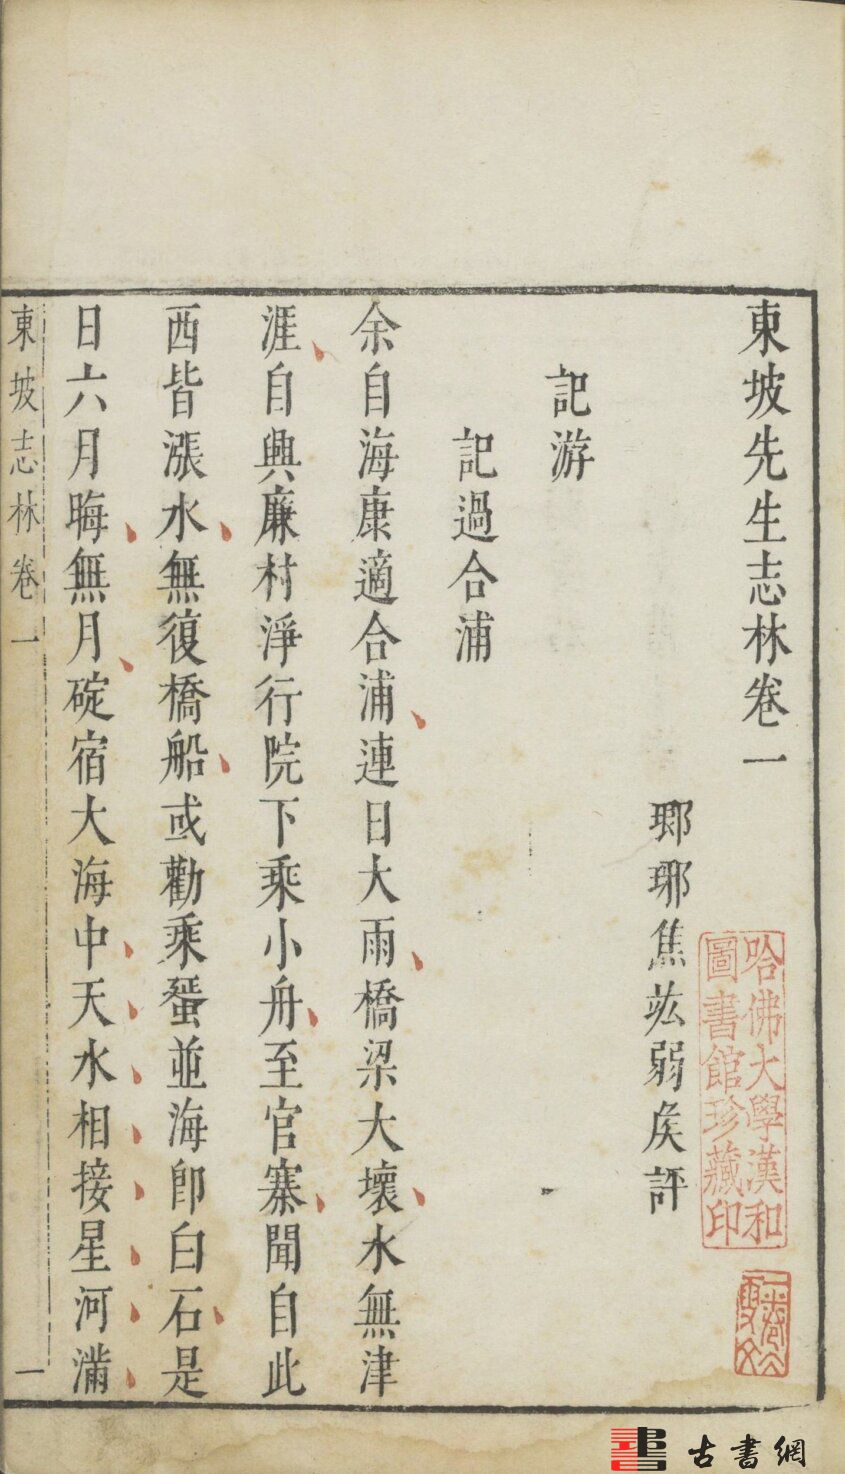 東坡先生志林卷一
瑯琊焦竑弱矦評
記游
記過合浦
余自海康適合浦連日大雨橋梁大壞水無津
涯自興廉村淨行院下乘小舟至官寨聞自此
西皆漲水無復橋船或勸乘蜑並海卽白石是
日六月晦無月碇宿大海中天水相接星河滿
東坡志林卷一
一
哈佛大學漢和
圖書館珍藏印
古書網